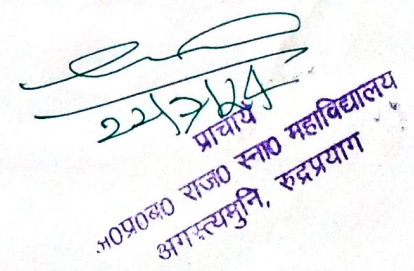 22/7/24
प्राचार्य
अ०प्र०ब० राज० स्ना० महाविद्यालय
अगस्त्यमुनि, रुद्रप्रयाग